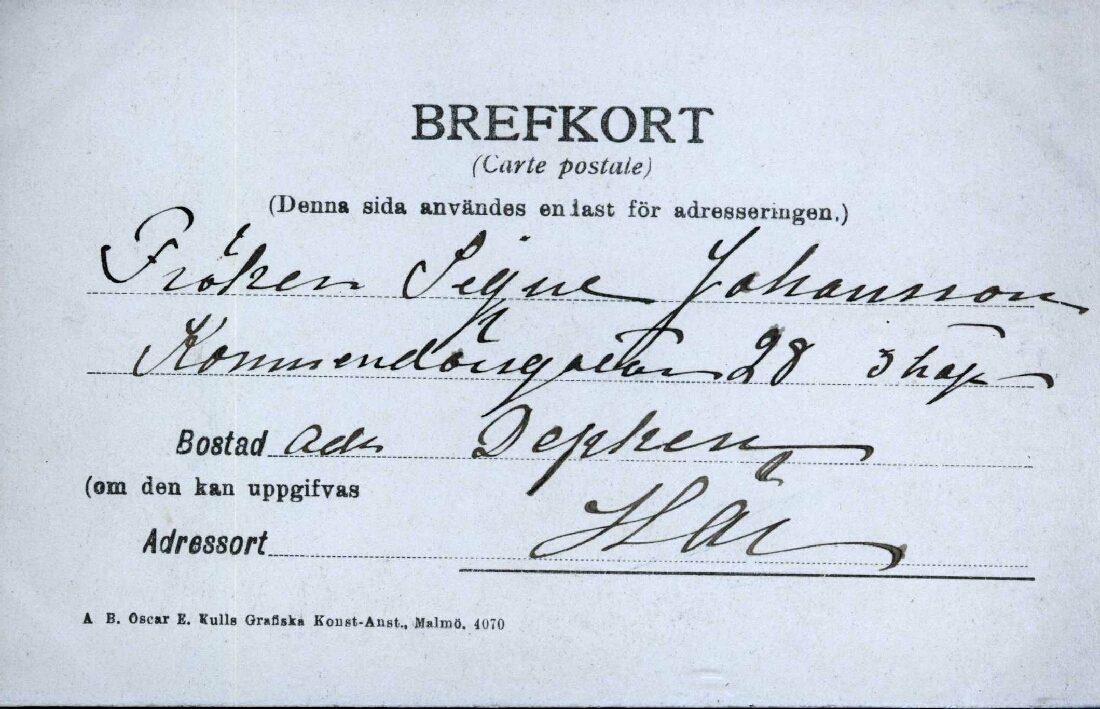 BREFKORT
(Carte postale)
(Denna sida användes endast för adresseringen.)
Fröken Signe Johansson
Kommendörsgatan 28 3 trap
Bostad Adr Depken
(om den kan uppgifvas
Adressort Här
A. B. Oscar E. Kulls Grafiska Konst-Anst., Malmö. 4070